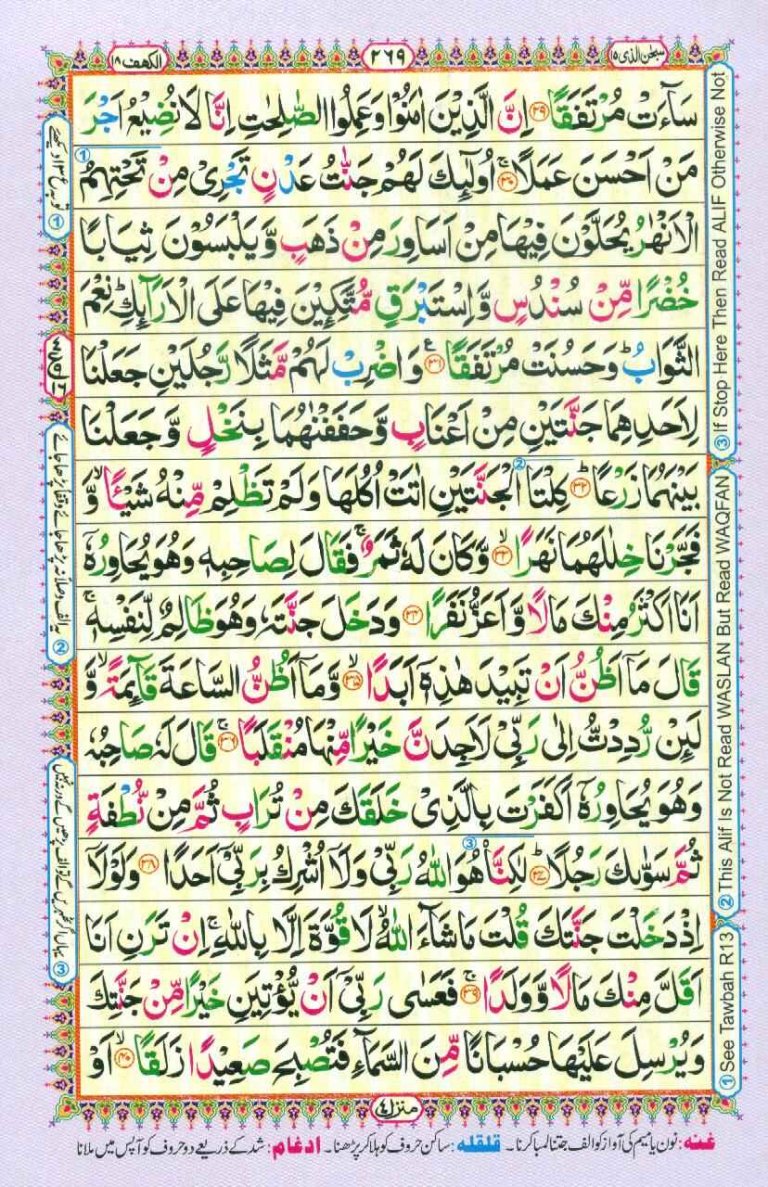 سبحن الذی ۱۵
۲۶۹
الکهف ۱۸
سَآءَتۡ مُرۡتَفَقًا ﴿۲۹﴾ اِنَّ الَّذِیۡنَ اٰمَنُوۡا وَعَمِلُوا الصّٰلِحٰتِ اِنَّا لَا نُضِیۡعُ اَجۡرَ
مَنۡ اَحۡسَنَ عَمَلًا ﴿ۚ۳۰﴾ اُولٰٓئِكَ لَهُمۡ جَنّٰتُ عَدۡنٍ تَجۡرِیۡ مِنۡ تَحۡتِهِمُ
الۡاَنۡهٰرُ یُحَلَّوۡنَ فِیۡهَا مِنۡ اَسَاوِرَ مِنۡ ذَهَبٍ وَّیَلۡبَسُوۡنَ ثِیَابًا
خُضۡرًا مِّنۡ سُنۡدُسٍ وَّاِسۡتَبۡرَقٍ مُّتَّكِئِیۡنَ فِیۡهَا عَلَی الۡاَرَآئِكِ ؕ نِعۡمَ
الثَّوَابُ ؕ وَحَسُنَتۡ مُرۡتَفَقًا ﴿۳۱﴾ وَاضۡرِبۡ لَهُمۡ مَّثَلًا رَّجُلَیۡنِ جَعَلۡنَا
لِاَحَدِهِمَا جَنَّتَیۡنِ مِنۡ اَعۡنَابٍ وَّحَفَفۡنٰهُمَا بِنَخۡلٍ وَّجَعَلۡنَا
بَیۡنَهُمَا زَرۡعًا ﴿ؕ۳۲﴾ كِلۡتَا الۡجَنَّتَیۡنِ اٰتَتۡ اُكُلَهَا وَلَمۡ تَظۡلِمۡ مِّنۡهُ شَیۡـًٔا ۙ وَّ
فَجَّرۡنَا خِلٰلَهُمَا نَهَرًا ﴿ۙ۳۳﴾ وَّكَانَ لَهٗ ثَمَرٌ ۚ فَقَالَ لِصَاحِبِهٖ وَهُوَ یُحَاوِرُهٗۤ
اَنَا اَكۡثَرُ مِنۡكَ مَالًا وَّاَعَزُّ نَفَرًا ﴿۳۴﴾ وَدَخَلَ جَنَّتَهٗ وَهُوَ ظَالِمٌ لِّنَفۡسِهٖ ۚ
قَالَ مَاۤ اَظُنُّ اَنۡ تَبِیۡدَ هٰذِهٖۤ اَبَدًا ﴿ۙ۳۵﴾ وَّمَاۤ اَظُنُّ السَّاعَةَ قَآئِمَةً ۙ وَّ
لَئِنۡ رُّدِدۡتُّ اِلٰی رَبِّیۡ لَاَجِدَنَّ خَیۡرًا مِّنۡهَا مُنۡقَلَبًا ﴿ۚ۳۶﴾ قَالَ لَهٗ صَاحِبُهٗ
وَهُوَ یُحَاوِرُهٗۤ اَكَفَرۡتَ بِالَّذِیۡ خَلَقَكَ مِنۡ تُرَابٍ ثُمَّ مِنۡ نُّطۡفَةٍ
ثُمَّ سَوّٰىكَ رَجُلًا ﴿ؕ۳۷﴾ لٰكِنَّا۠ هُوَ اللّٰهُ رَبِّیۡ وَلَاۤ اُشۡرِكُ بِرَبِّیۡۤ اَحَدًا ﴿۳۸﴾ وَلَوۡلَاۤ
اِذۡ دَخَلۡتَ جَنَّتَكَ قُلۡتَ مَا شَآءَ اللّٰهُ ۙ لَا قُوَّةَ اِلَّا بِاللّٰهِ ۚ اِنۡ تَرَنِ اَنَا
اَقَلَّ مِنۡكَ مَالًا وَّوَلَدًا ﴿ۚ۳۹﴾ فَعَسٰی رَبِّیۡۤ اَنۡ یُّؤۡتِیَنِ خَیۡرًا مِّنۡ جَنَّتِكَ
وَیُرۡسِلَ عَلَیۡهَا حُسۡبَانًا مِّنَ السَّمَآءِ فَتُصۡبِحَ صَعِیۡدًا زَلَقًا ﴿ۙ۴۰﴾ اَوۡ
منزل ۴
① See Tawbah R13
② This Alif Is Not Read WASLAN But Read WAQFAN
③ If Stop Here Then Read ALIF Otherwise Not
غنه: نون یا میم کی آواز کو الف جتنا لمبا کرنا۔ قلقله: ساکن حروف کو ہلا کر پڑھنا۔ ادغام: شد کے ذریعے دو حروف کو آپس میں ملانا